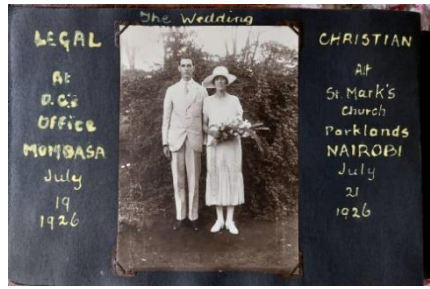 The Wedding
LEGAL
At
D.C's
OFFICE
MOMBASA
July
19
1926
CHRISTIAN
At
St. Mark's
Church
Parklands
NAIROBI
July
21
1926